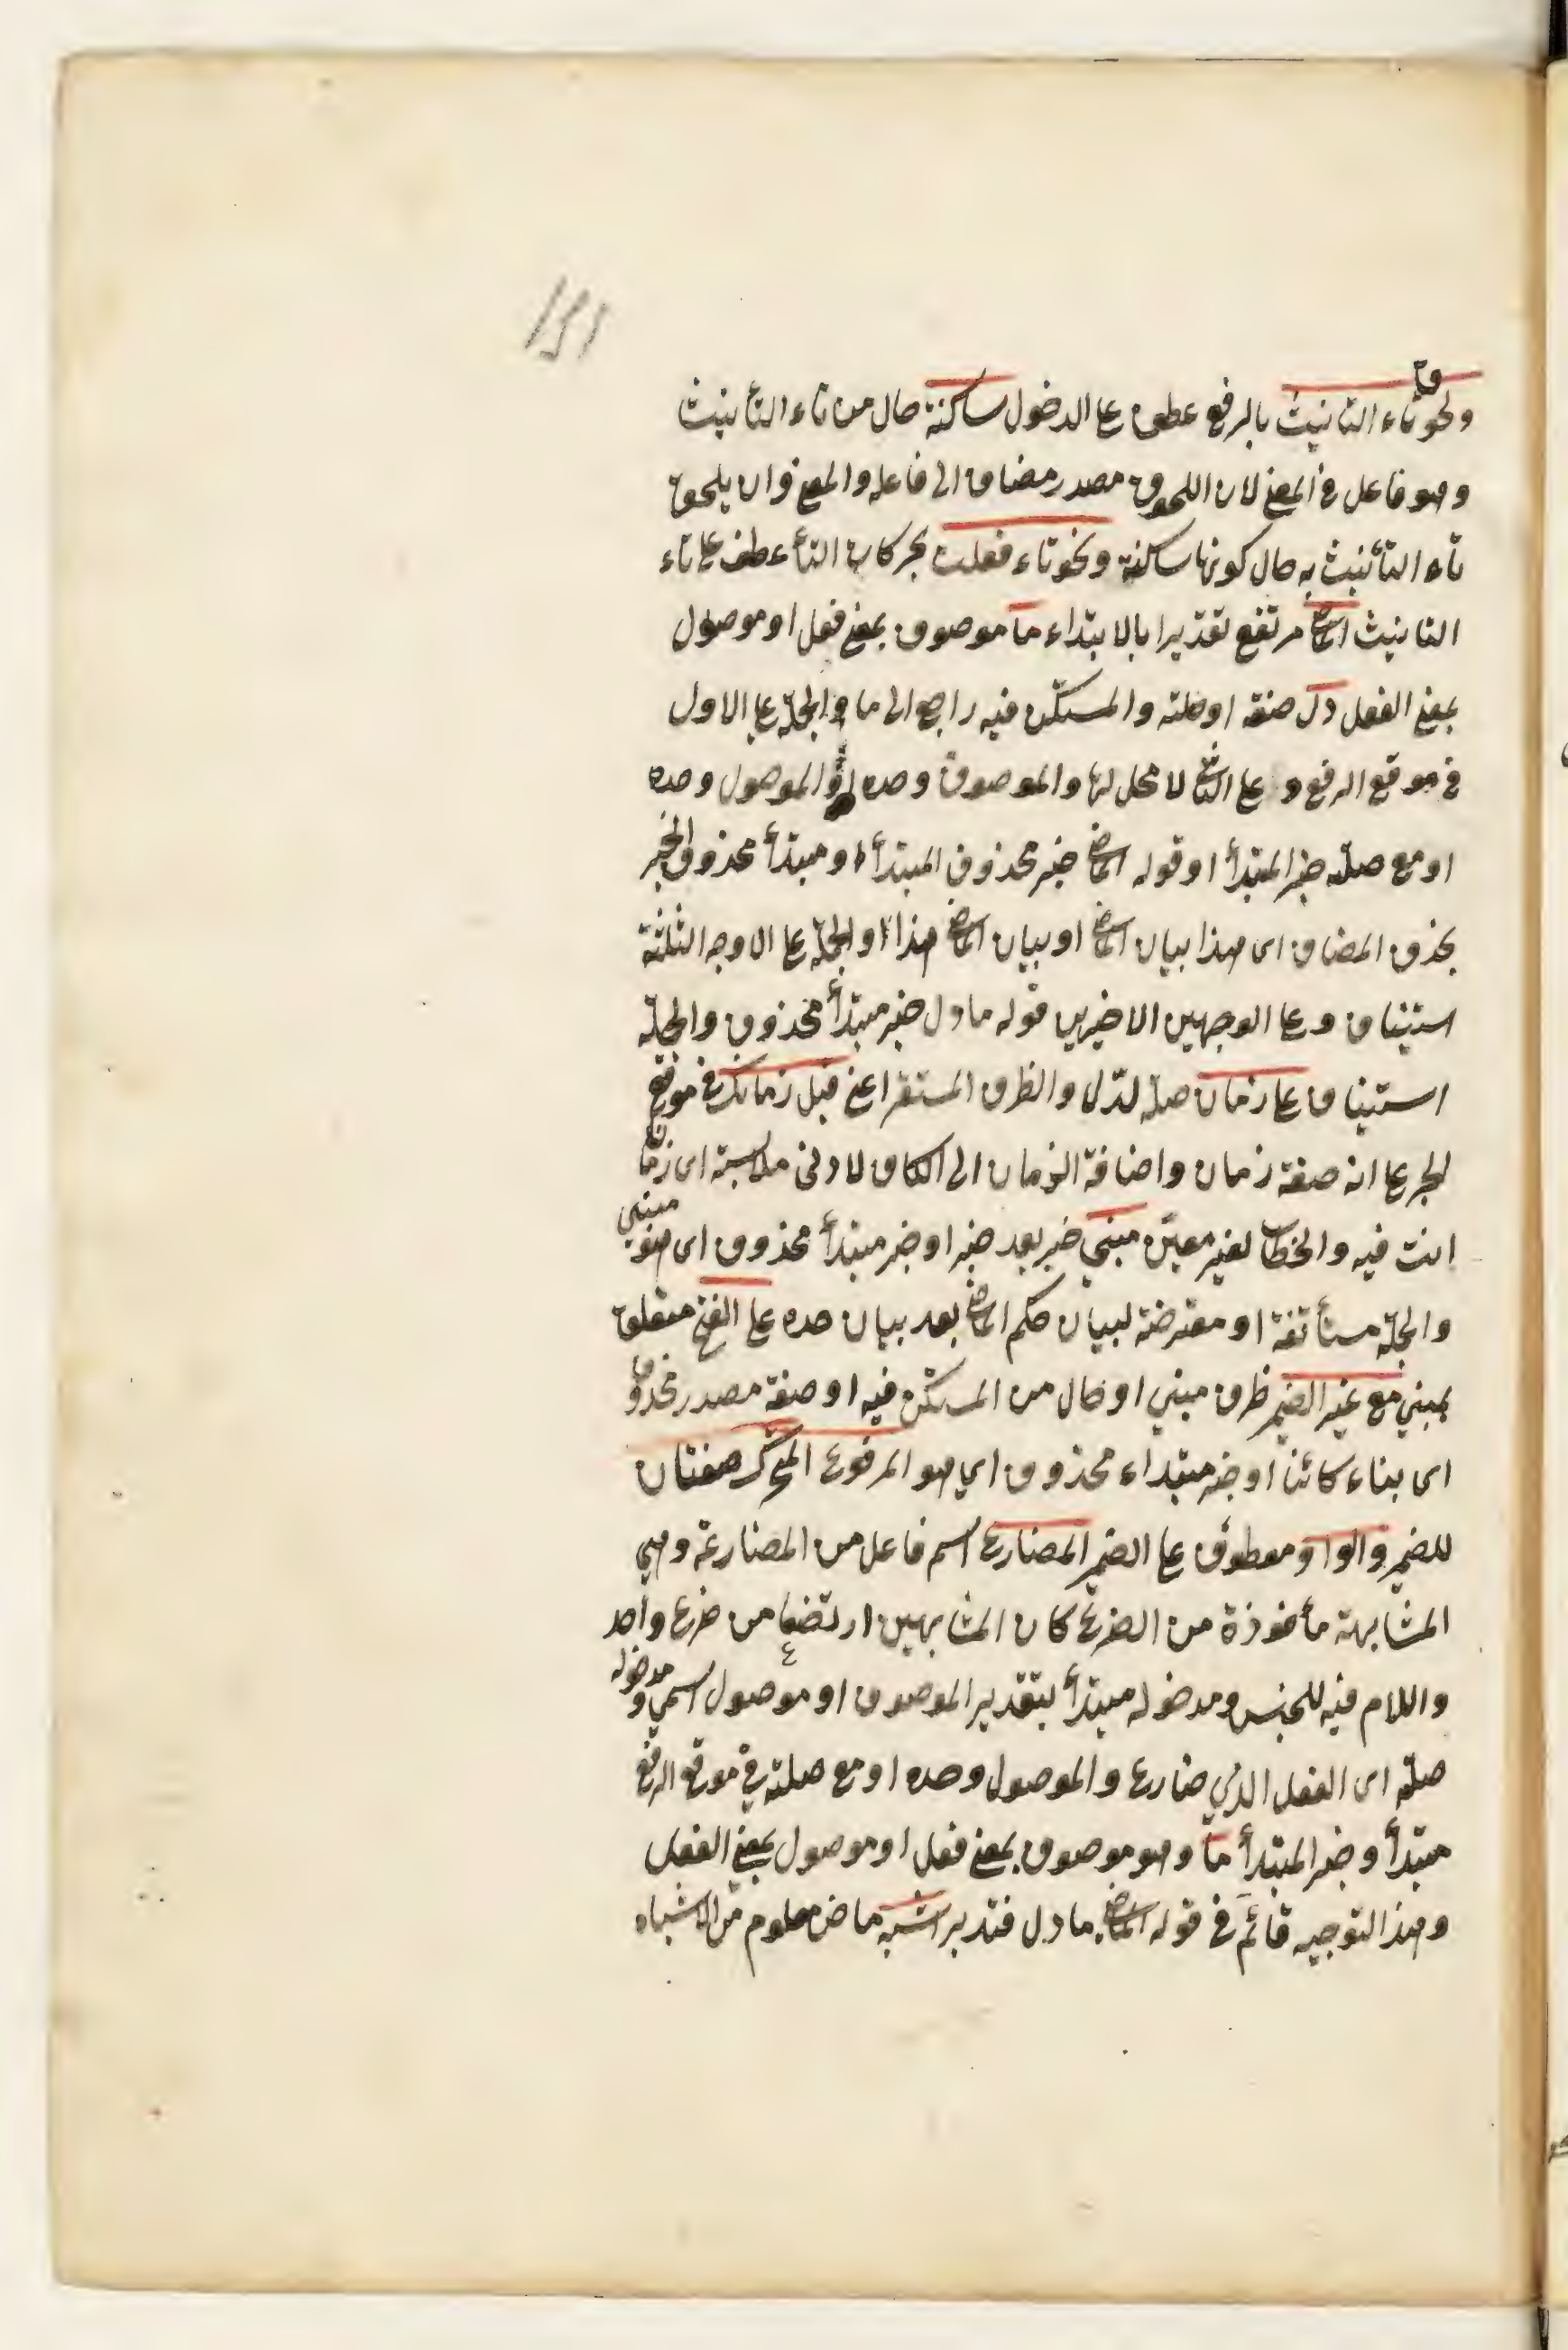 ولحوق تاء التانيث بالرفع عطف على الدخول ساكنة حال من تاء التأنيث
وهو فاعل في المعنى لان اللحوق مصدر مضاف الى فاعله والمعنى وان يلحق
تاء التأنيث به حال كونها ساكنة ونحو تاء فعلت بحركات التاء عطف على تاء
التانيث الماضي مرتفع تقديرا بالابتداء ما موصوف بمعنى فعل او موصول
بمعنى الفعل دل صفته او صلته والمستكن فيه راجع الى ما والجملة على الاول
في موقع الرفع وعلى الثاني لا محل لها والموصوف وحده او الموصول وحده
او مع صلته خبر المبتدأ او قوله الماضي خبر محذوف المبتدأ او مبتدأ محذوف الخبر
بحذف المضاف اى هذا بيان الماضي او بيان الماضي هذا والجملة على الاوجه الثلثة
استيناف وعلى الوجهين الاخيرين قوله ما دل خبر مبتدأ محذوف والجملة
استيناف على زمان صلة لدل والظرف المستقر اعنى قبل زمانك في موقع
الجر على انه صفة زمان واضافة الزمان الى الكاف لادنى ملابسة اى زمان
انت فيه والخطاب لغير معين مبني خبر بعد خبر او خبر مبتدأ محذوف اى هو مبنى
والجملة مستأنفة او معترضة لبيان حكم الماضي بعد بيان حده على الفتح متعلق
بمبني مع غير الضمير ظرف مبني او حال من المستكن فيه او صفة مصدر محذوف
اى بناء كائنا او خبر مبتداء محذوف اي هو المرفوع المتحرك صفتان
للضمير والواو معطوف على الضمير المضارع اسم فاعل من المضارعة وهي
المشابهة مأخوذة من الضرع كان المشابهين ارتضعا من ضرع واحد
واللام فيه للجنس ومدخوله مبتدأ بتقدير الموصوف او موصول اسمي ومدخوله
صلته اى الفعل الذي ضارع والموصول وحده او مع صلته في موقع الرفع
مبتدأ وخبر المبتدأ ما وهو موصوف بمعنى فعل او موصول بمعنى الفعل
وهذا التوجيه قائم في قوله الماضي ما دل فتدبر اشبه ماض معلوم من الاشباه